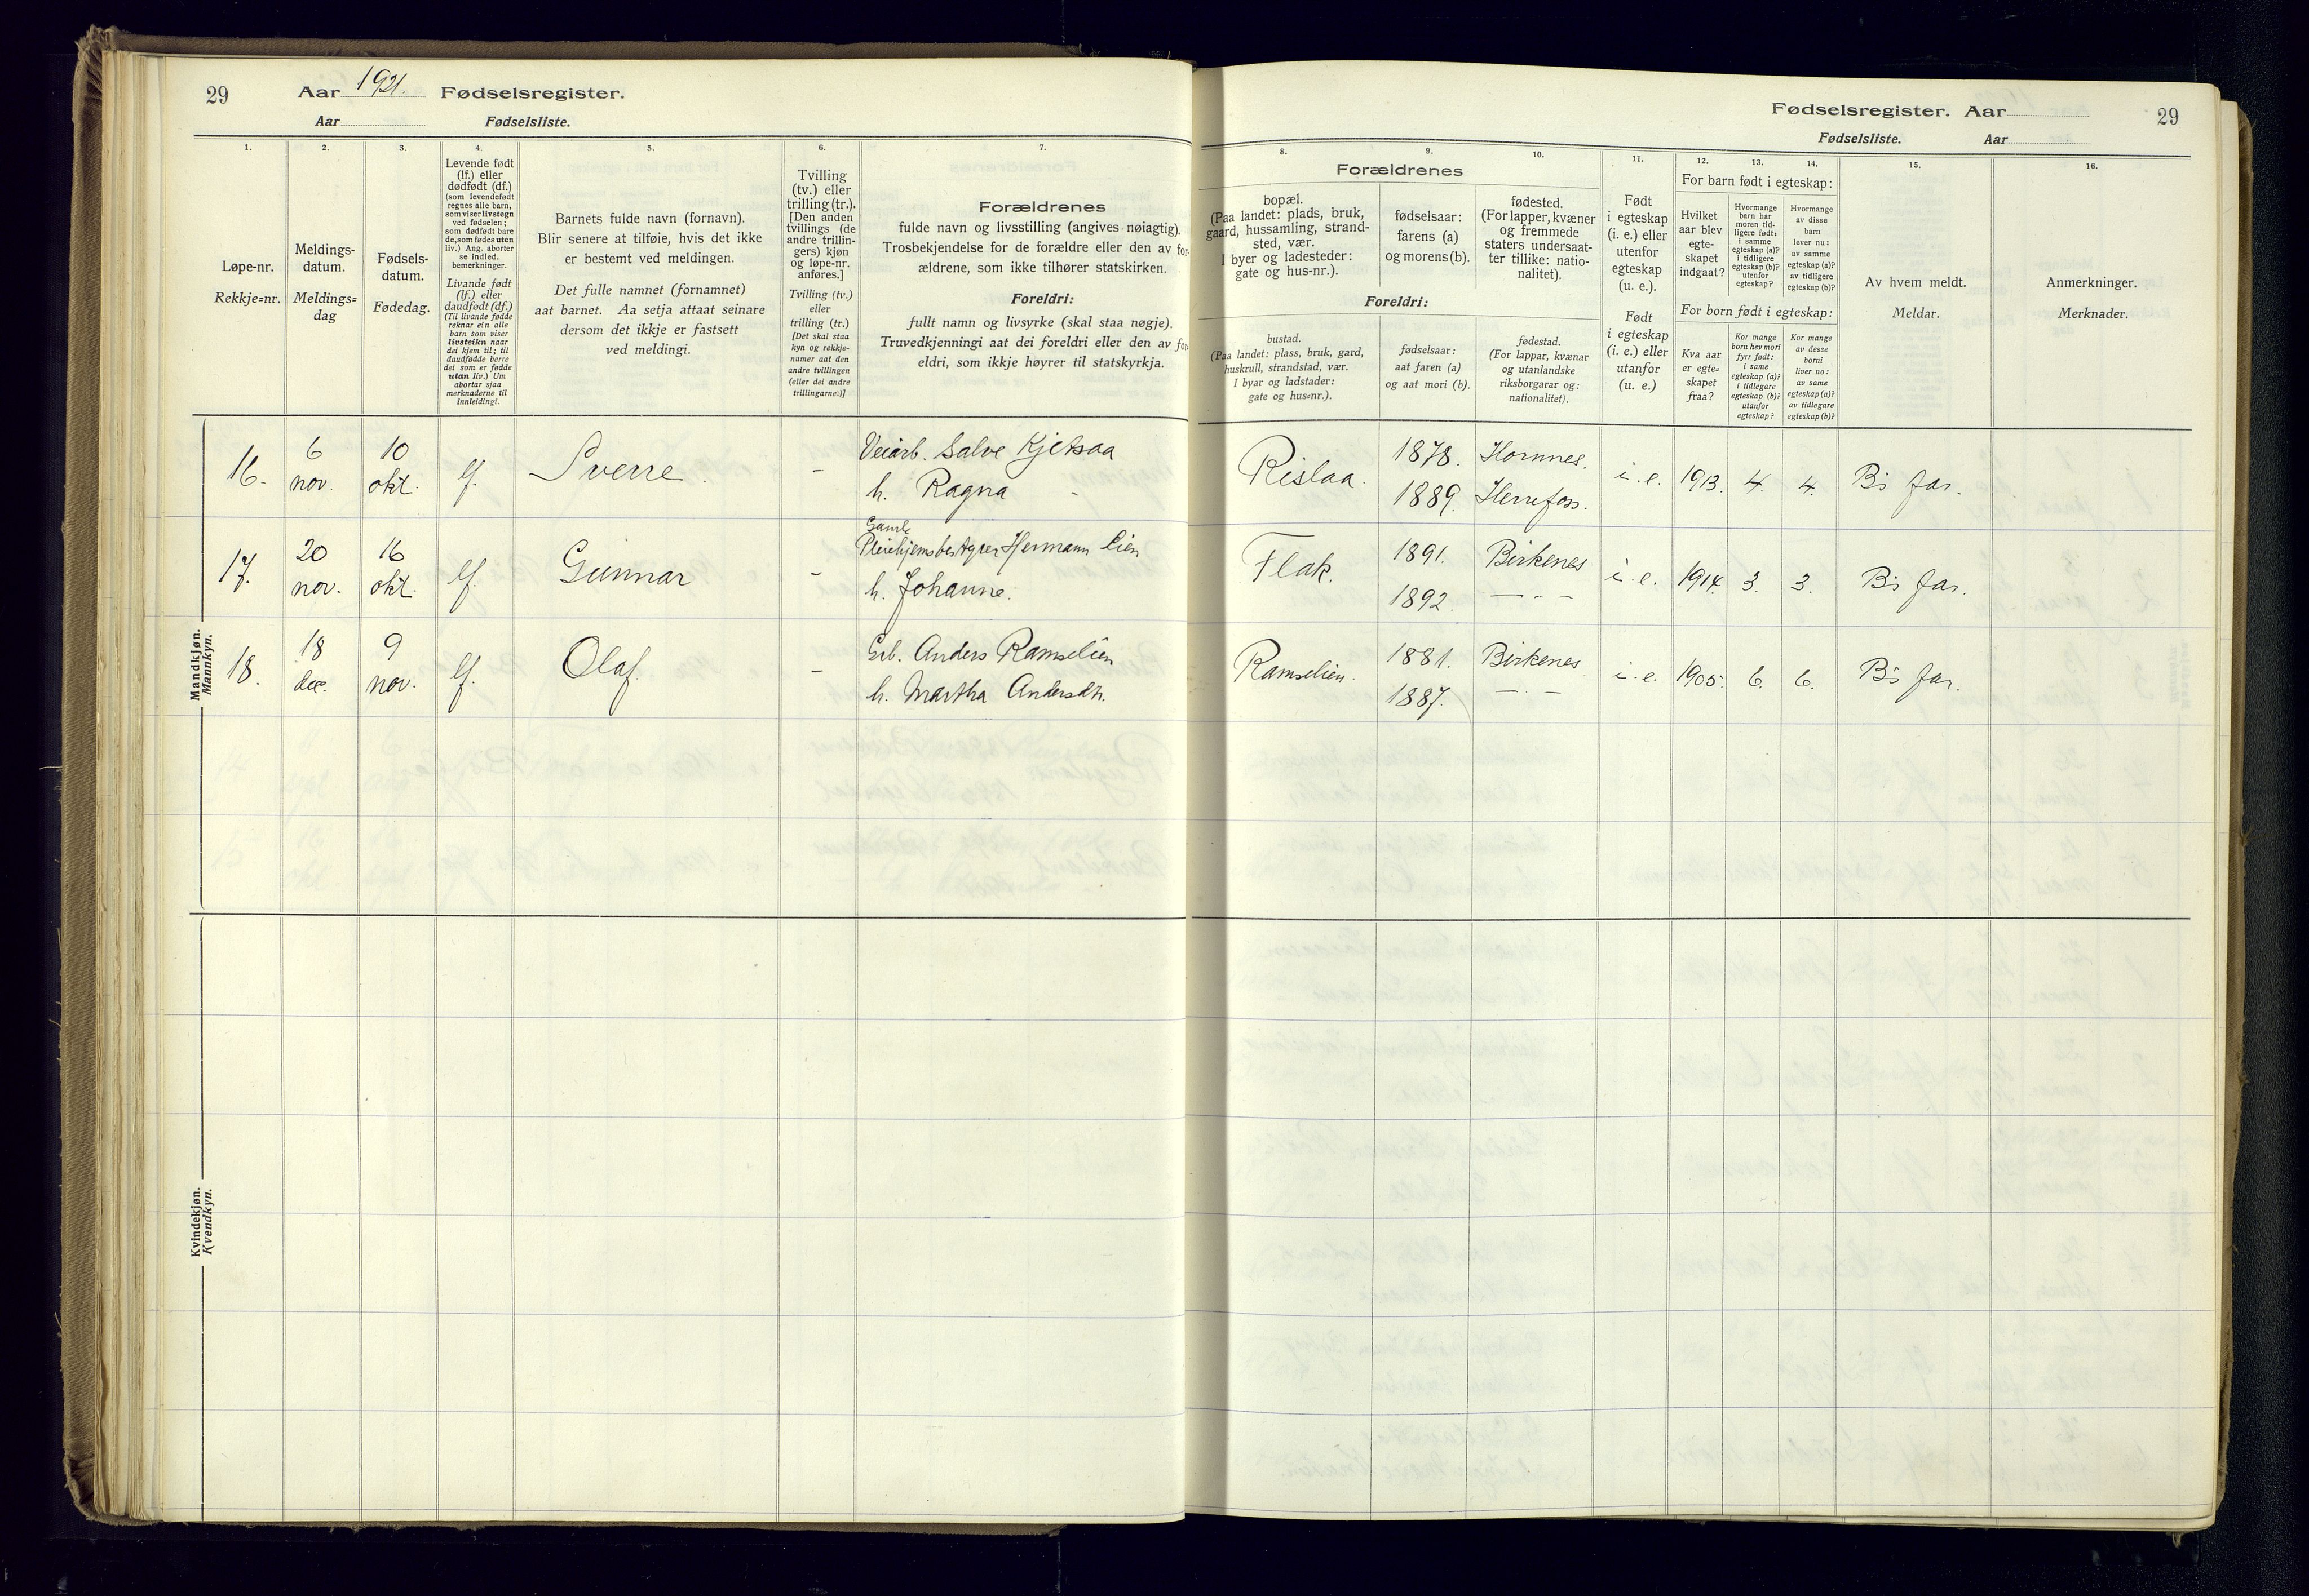 29 Aar 1921. Fødselsregister.
Aar Fødselsliste.
1. 2. 3. 4. 5. 6. 7.
Løpe-nr.
Rekkje=nr.
Meldings-
datum.
Meldings=
dag
Fødsels-
datum.
Fødedag.
Levende født
(lf.) eller
dødfødt (df.)
(som levendefødt
regnes alle barn,
som viser livstegn
ved fødselen;
som dødfødt bare
de, som fødes uten
liv.) Ang. aborter
se indled.
bemerkninger.
Livande født
(lf.) eller
daudfødt (df.)
(Til livande fødde
reknar ein alle
barn som viser
livsteikn naar
dei kjem til; til
daudfødde berre
dei som er fødde
utan liv.) Um
abortar sjaa
merknaderne til
innleidingi.
Barnets fulde navn (fornavn).
Blir senere at tilføie, hvis det ikke
er bestemt ved meldingen.
Det fulle namnet (fornamnet)
aat barnet. Aa setja attaat seinare
dersom det ikkje er fastsett
ved meldingi.
Tvilling
(tv.) eller
trilling (tr.).
[Den anden
tvillings (de
andre trillin-
gers) kjøn
og løpe-nr.
anføres.]
Tvilling (tv.)
eller
trilling (tr.)
[Det skal staa
kyn og rekkje-
numer aat den
andre tvillingen
(eller dei andre
trillingarne.)]
Forældrenes
fulde navn og livsstilling (angives nøiagtig).
Trosbekjendelse for de forældre eller den av for-
ældrene, som ikke tilhører statskirken.
Foreldri:
fullt namn og livsyrke (skal staa nøgje).
Truvedkjenningi aat dei foreldri eller den av for-
eldri, som ikkje høyrer til statskyrkja.
Mandkjøn.
Mannkyn.
16. 6 nov. 10 okt. lf. Sverre. - Veiarb. Salve Kjetsaa
h. Ragna -
17. 20 nov. 16 okt. lf. Gunnar - Gamle
Pleiehjemsbestyrer Hermann Lien
h. Johanne.
18. 18 dec. 9 nov. lf. Olaf. - Grb. Anders Ramselien
h. Martha Andersdtr.
Kvindekjøn.
Kvendkyn.
Fødselsregister. Aar 29
Fødselsliste. Aar
8. 9. 10. 11. 12. 13. 14. 15. 16.
Forældrenes
bopæl.
(Paa landet: plads, bruk,
gaard, hussamling, strand-
sted, vær.
I byer og ladesteder:
gate og hus-nr.).
fødselsaar:
farens (a)
og morens (b).
fødested.
(For lapper, kvæner
og fremmede
staters undersaat-
ter tillike: natio-
nalitet).
Foreldri:
bustad.
(Paa landet: plass, bruk, gard,
huskrull, strandstad, vær.
I byar og ladstader:
gate og hus=nr.).
fødselsaar:
aat faren (a)
og aat mori (b).
fødestad.
(For lappar, kvænar
og utanlandske
riksborgarar og:
nationalitet).
Født
i egteskap
(i. e.) eller
utenfor
egteskap
(u. e.).
Født
i egteskap
(i. e.) eller
utanfor
(u. e.)
For barn født i egteskap:
Hvilket
aar blev
egte-
skapet
indgaat?
Hvormange
barn har
moren tid-
ligere født:
i samme
egteskap (a)?
i tidligere
egteskap (b)?
utenfor
egteskap?
Hvormange
av disse
barn
lever nu:
av samme
egteskap (a)?
av tidligere
egteskap (b)?
For born født i egteskap:
Kva aar
er egte=
skapet
fraa?
Kor mange
born hev mori
fyrr født:
i same
egteskap (a)?
i tidlegare
egteskap (b)?
utanfor
egteskap?
Kor mange
av desse
borni
liver no:
av same
egteskap (a)?
av tidlegare
egteskap (b)?
Av hvem meldt.
Meldar.
Anmerkninger.
Merknader.
Rislaa. 1878. Hornnes. i. e. 1913. 4. 4. Bs far.
1889. Herrefoss.
Flak. 1891. Birkenes i. e. 1914. 3. 3. Bs far.
1892. — - -
Ramselien. 1881. Birkenes i. e. 1905. 6. 6. Bs far.
1887. — . -